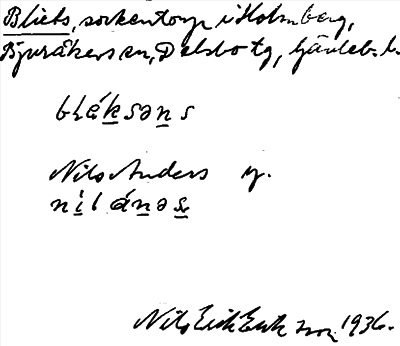 Bliets, sockentorp i Holmberg,
Bjuråkers sn, Delsbo tg, Gävleb. l.
bléksəns
Nils Anders g.
nilánəs
Nils Erik 1936.